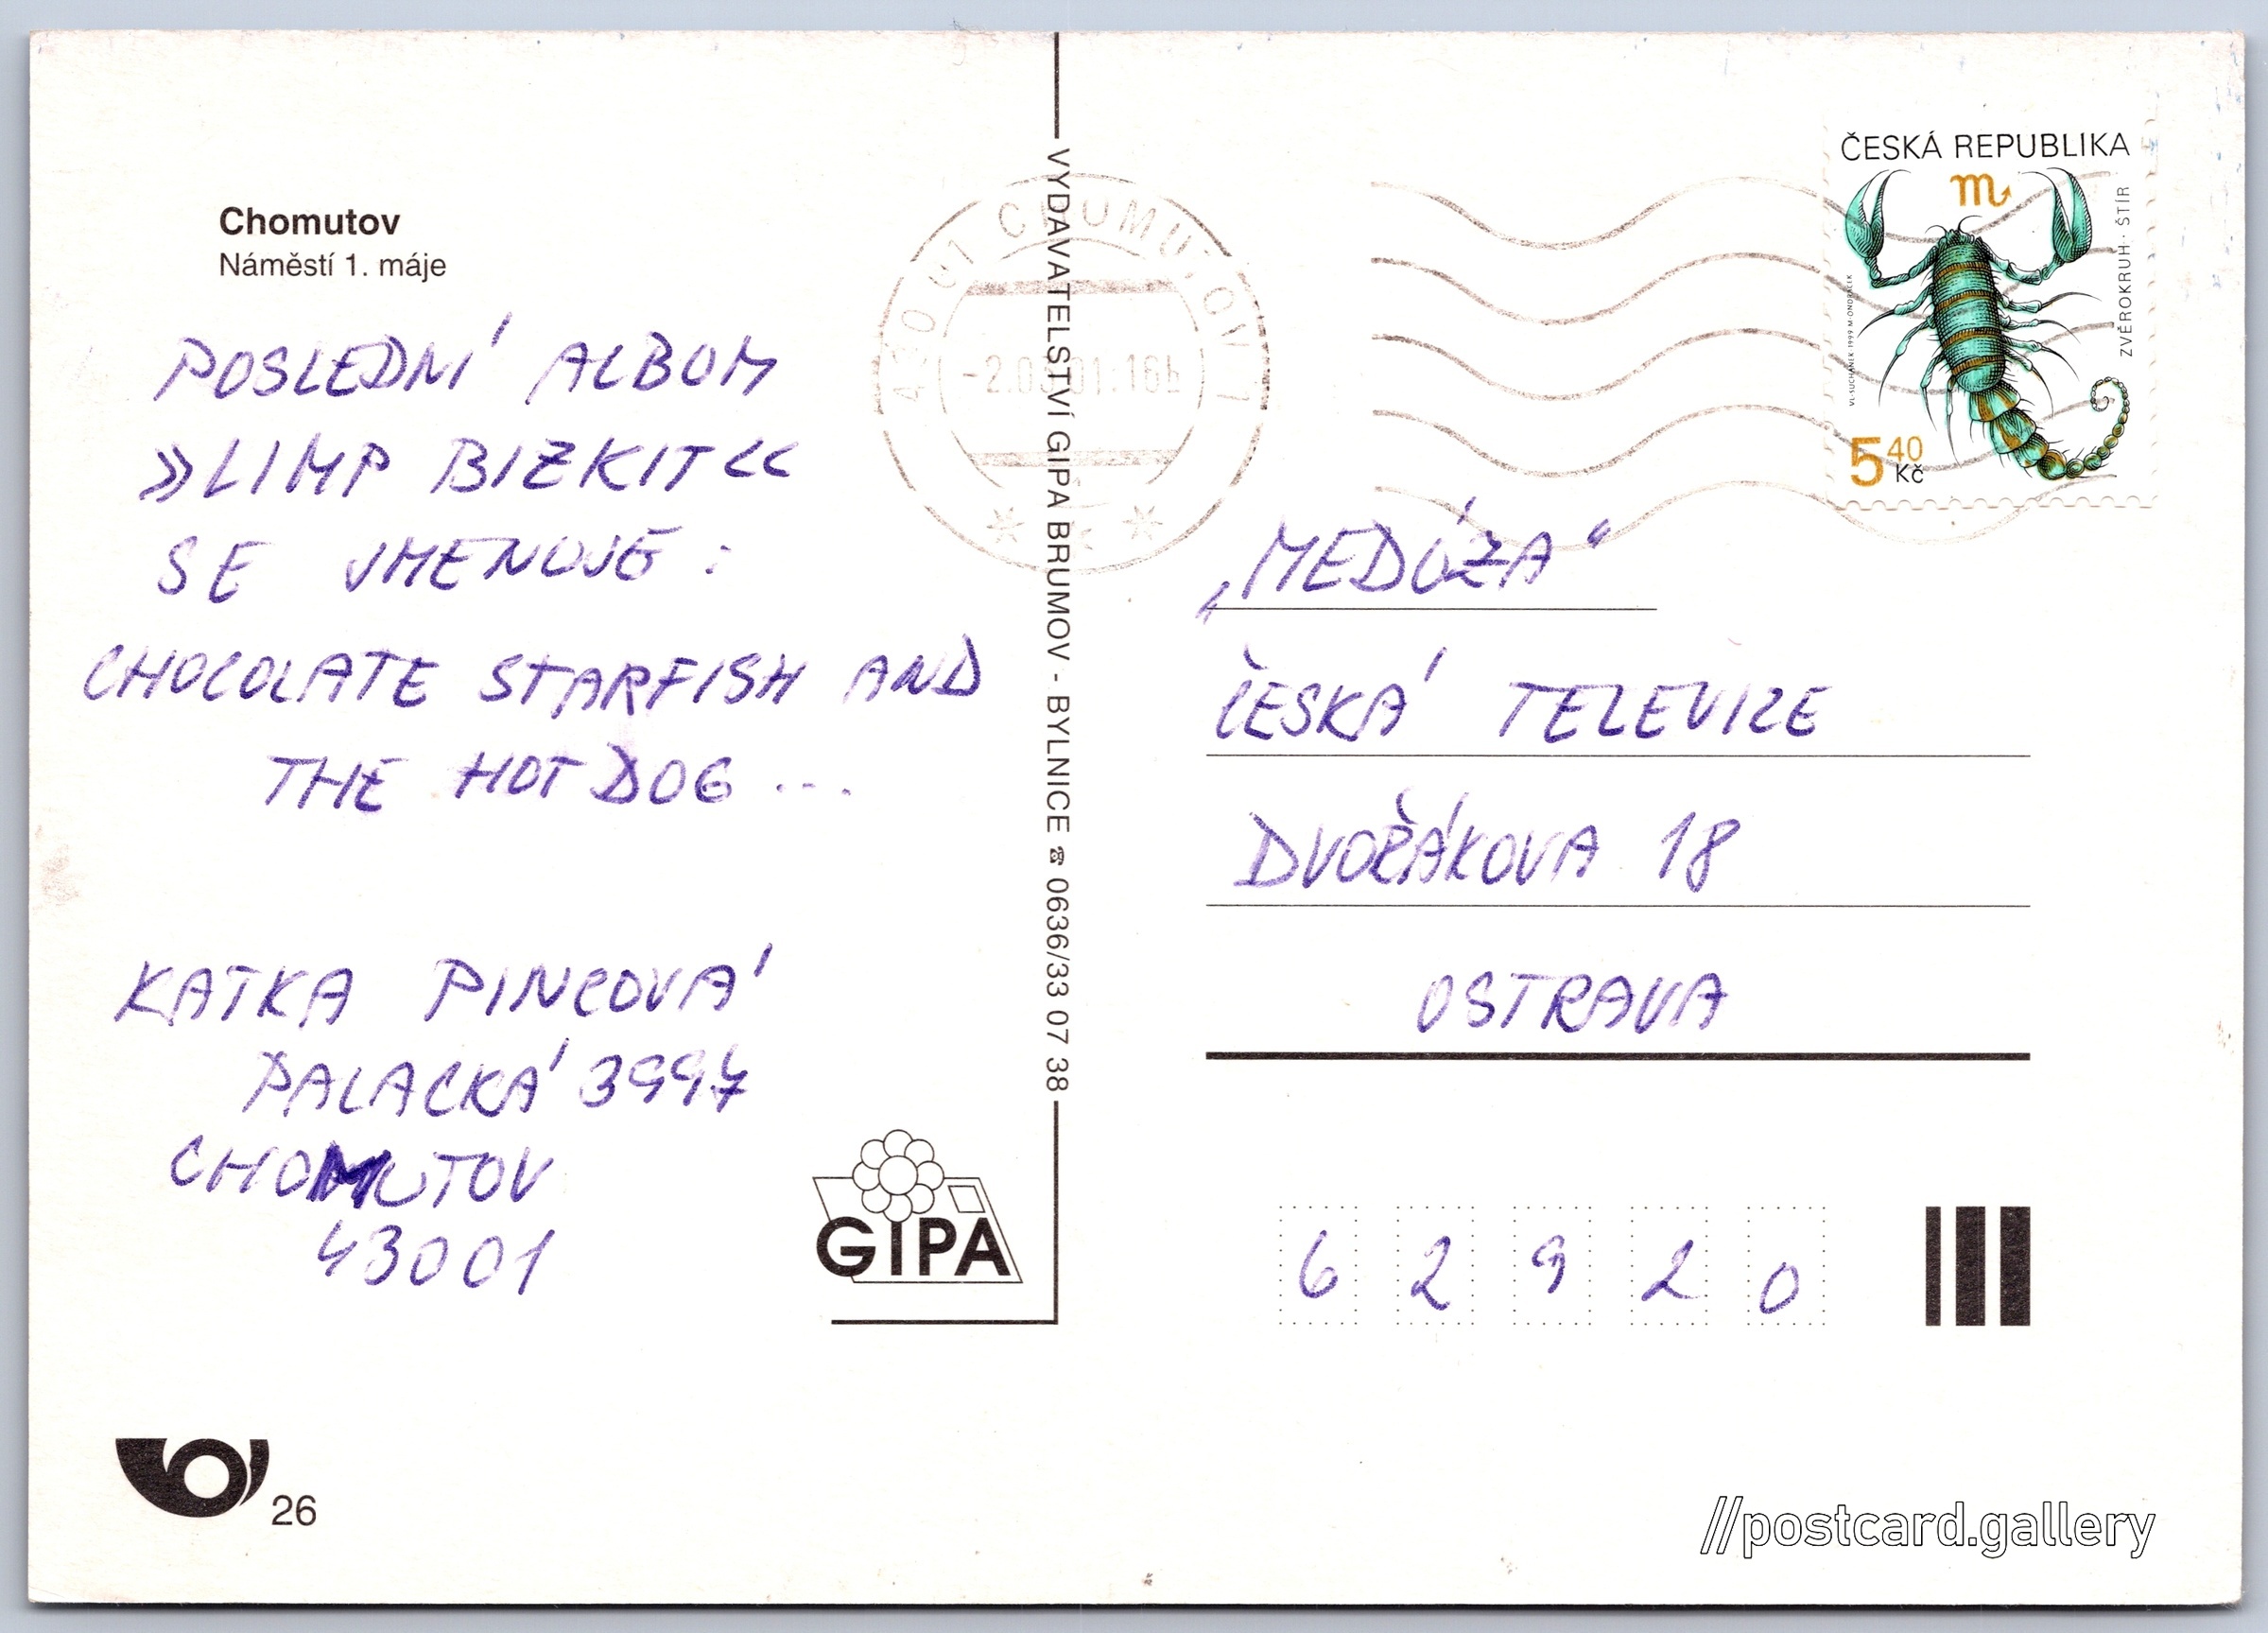 Chomutov
Náměstí 1. máje
POSLEDNÍ ALBUM
»LIMP BIZKIT«
SE JMENUJE:
CHOCOLATE STARFISH AND
THE HOT DOG ...
KATKA PINCOVÁ
PALACKÁ 3997
CHOMUTOV
43001
GIPA
26
VYDAVATELSTVÍ GIPA BRUMOV - BYLNICE ☎ 0636/33 07 38
430 01 CHOMUTOV 1
-2.03.01:16h
ČESKÁ REPUBLIKA
ZVĚROKRUH · ŠTÍR
VL. SUCHÁNEK 1999 M. ONDRÁČEK
5 40 Kč
„MEDÚZA“
ČESKÁ TELEVIZE
DVOŘÁKOVA 18
OSTRAVA
62920
//postcard.gallery